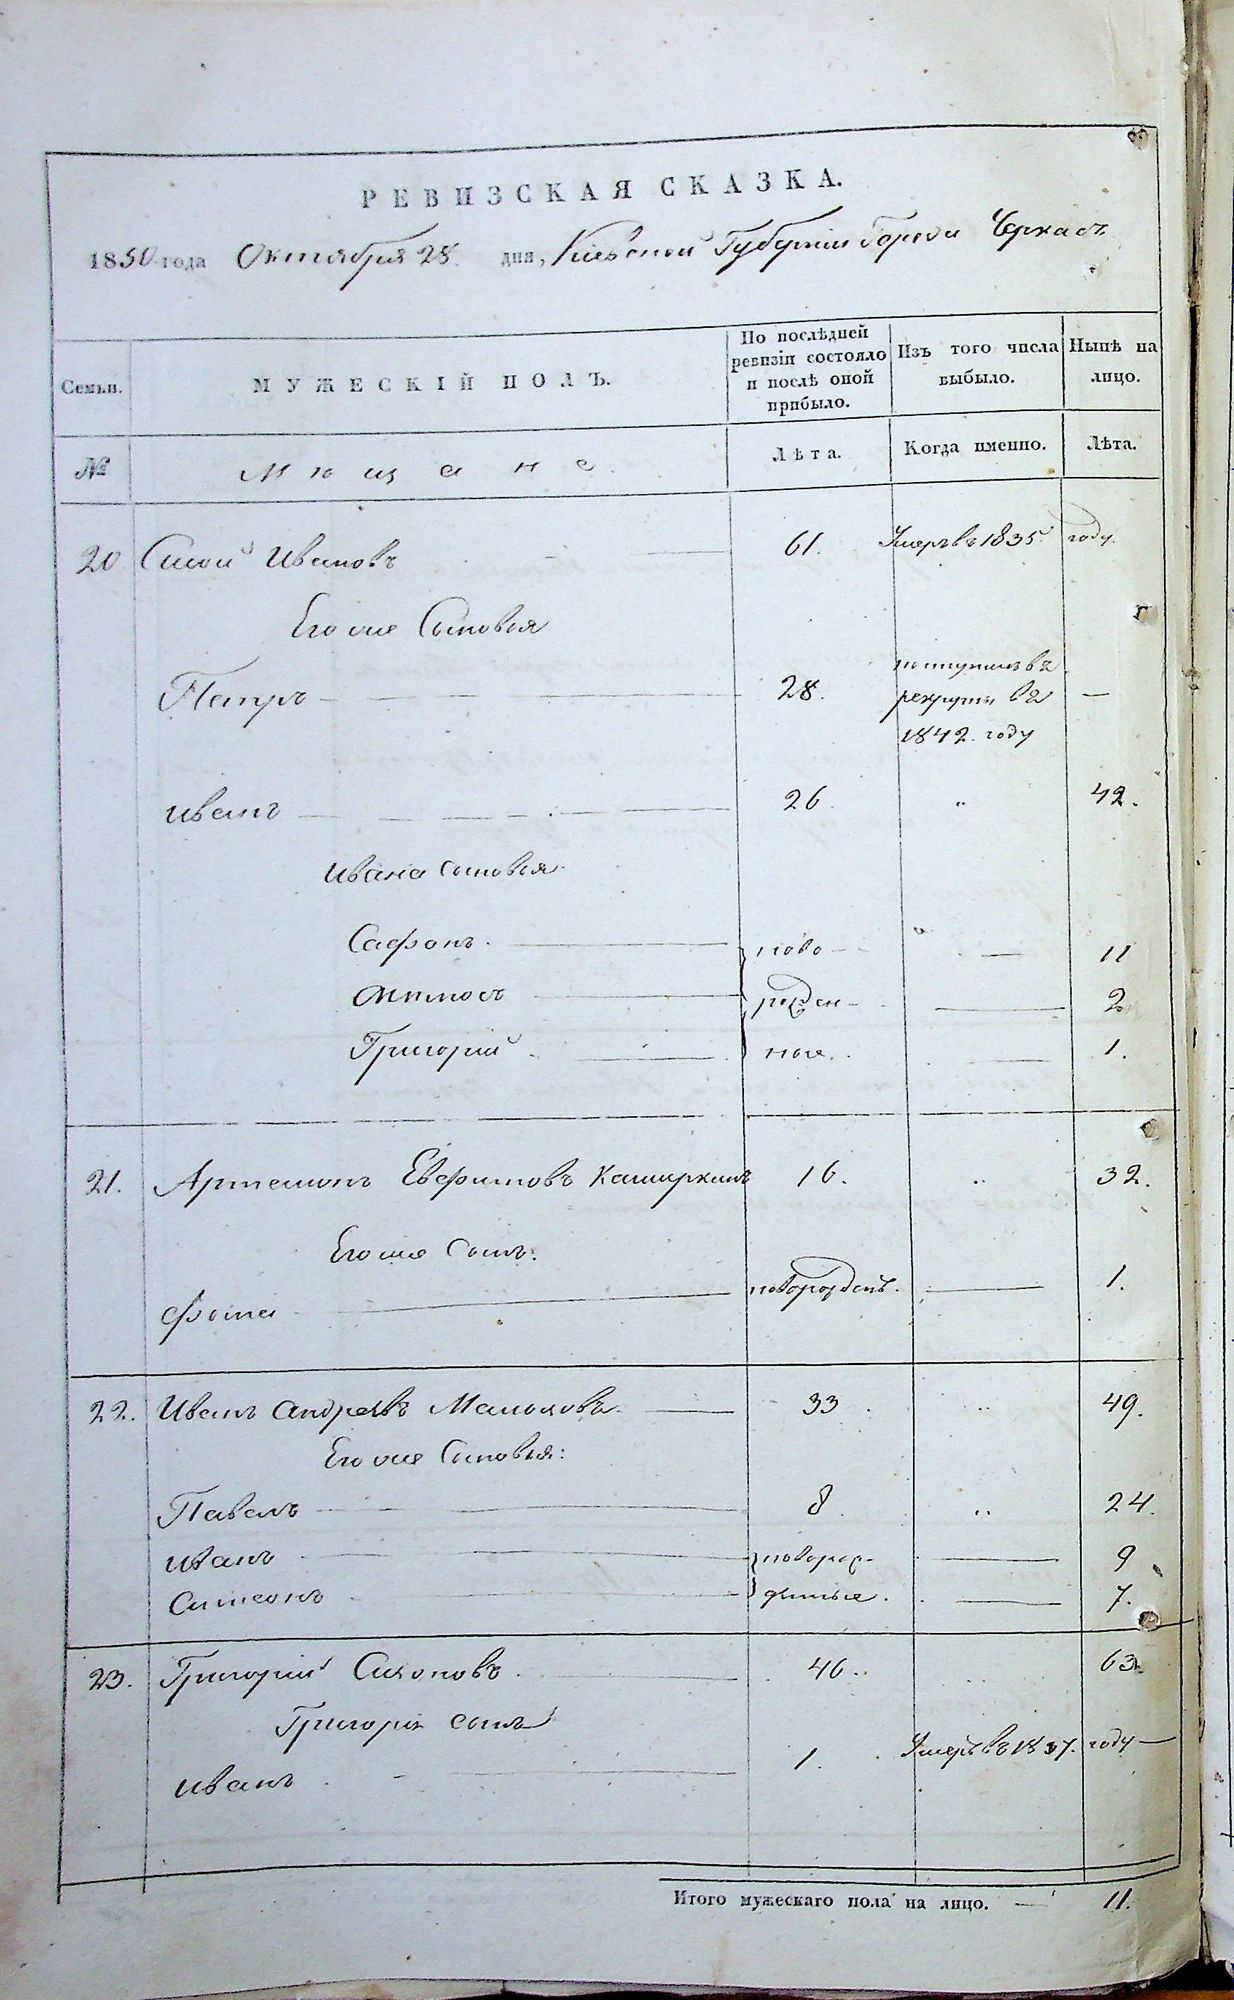 РЕВИЗСКАЯ СКАЗКА.
1850 года Октября 28. дня, Кіевской Губерніи Города Черкасъ
Семьи.
МУЖЕСКІЙ ПОЛЪ.
По послѣдней ревизіи состояло и послѣ оной прибыло.
Изъ того числа выбыло.
Нынѣ на лицо.
№
Мѣщане.
Лѣта.
Когда именно.
Лѣта.
20 Ивановъ 61. Умеръ въ 1835. году.
Его же Сыновья
Петръ 28. поступилъ въ рекруты въ 1842. году
Иванъ 26. „ 42.
Ивана сыновья
Сафонъ. ново- „ 11
рожден- 2
Григорій ные. 1.
21. Артемонъ Каширкинъ 16. „ 32.
Его же Сынъ:
Фома новорожденъ. 1.
22. Иванъ Андреевъ 33. „ 49.
Его же Сыновья:
Павелъ 8. „ 24.
Иванъ новорож- 9
Симеонъ денные. 7.
23. Григорій 46. 63.
Григорія сынъ
Иванъ 1. Умеръ въ 1837. году
Итого мужескаго пола на лицо. 11.